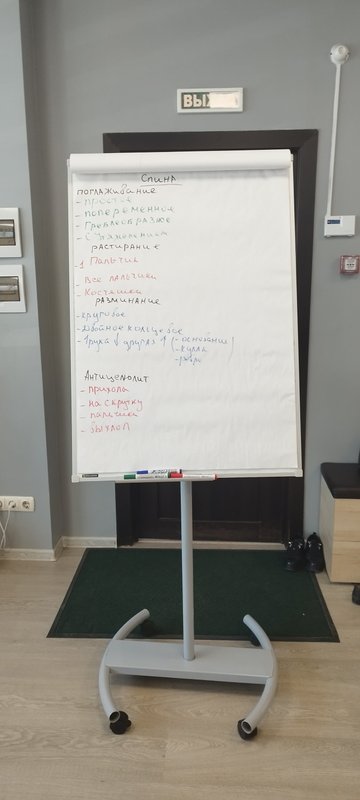 ВЫХОД
Спина
поглаживание
- простое
- попеременное
- Граблеобразное
- с отяжением
растирание
- 1 Пальчик
- Все пальчики
- Костяшки
разминание
- круговое
- двойное кольцевое
- 1 рука ↓ другая ↑ (- основание
- кулак
- ребро
Антицеллюлит
- прихопа
- на скрутку
- палочки
- выхлоп